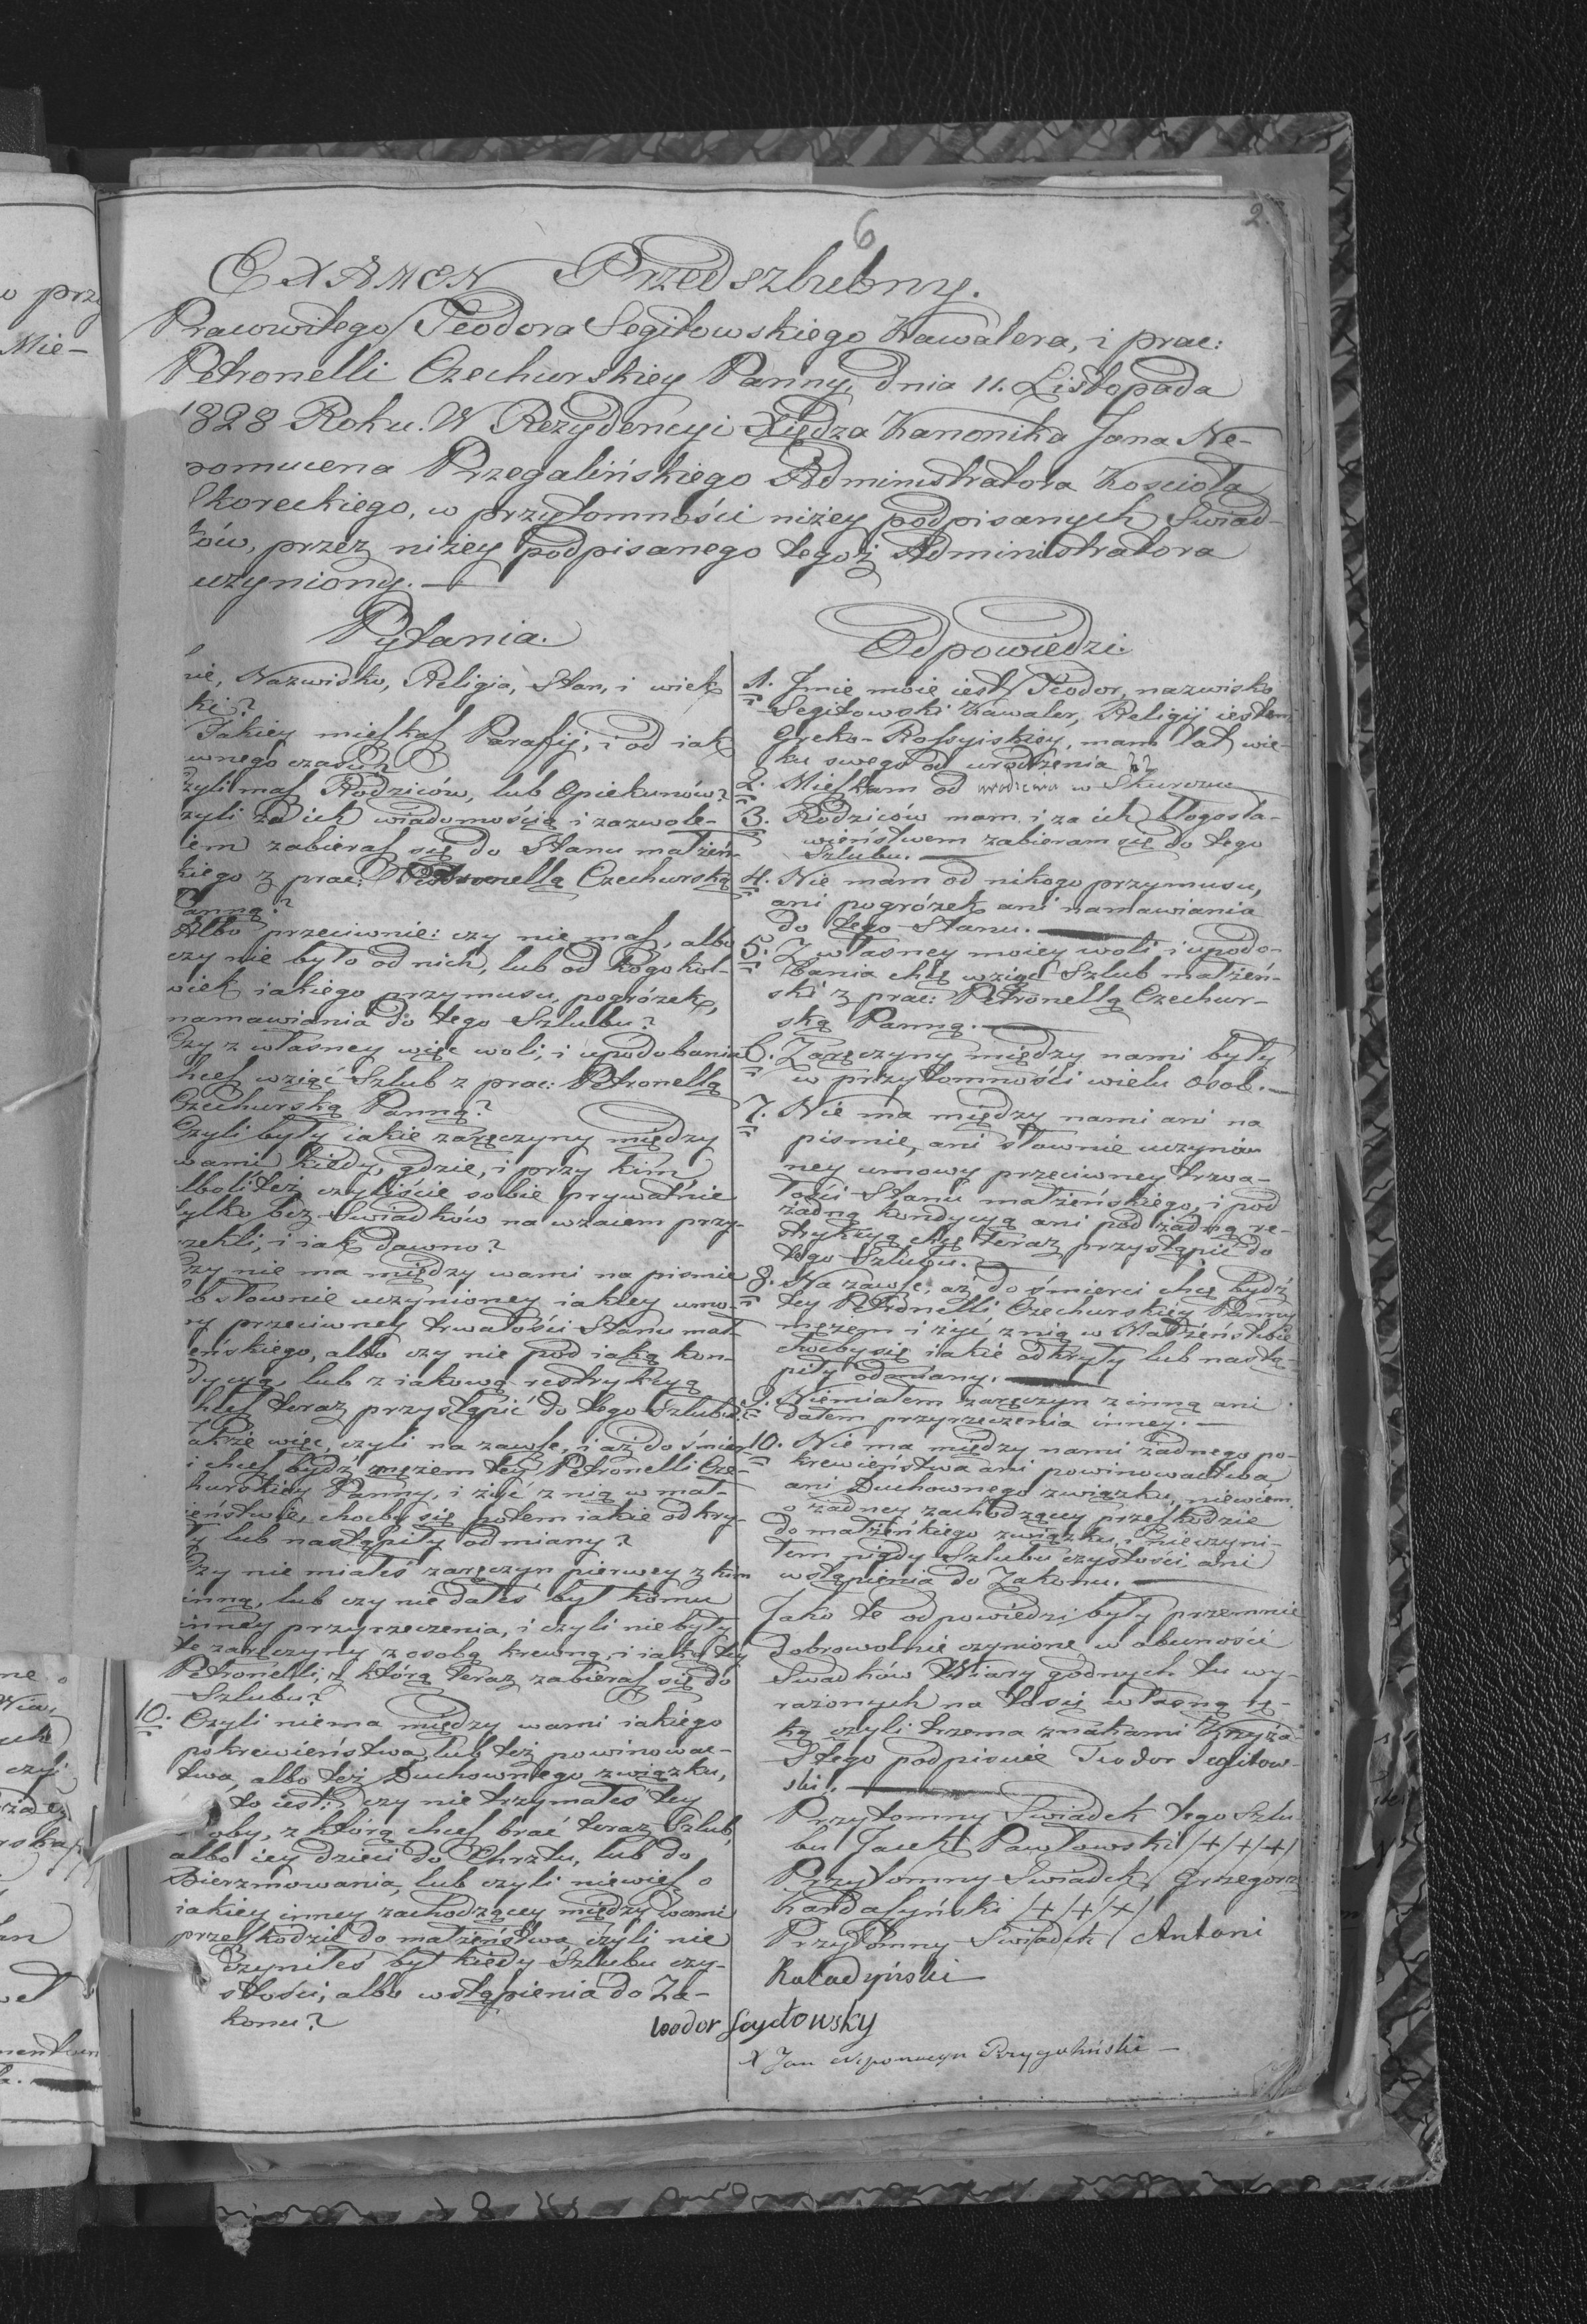 6
2.
EXAMEN Przedszlubny.
Prawowitego Teodora Segitowskiego Kawalera, i prac:
Petronelli Czechurskiey Panny, dnia 11. Listopada
1828 Roku. W Rezydencyi Xiędza Kanonika Jana Ne-
pomucena Przegalińskiego Administratora Kościoła
Skoreckiego, w przytomności niżey podpisanych Swiad-
ków, przez niżey podpisanego tegoż Administratora
uczyniony. —
Pytania.
nie, Nazwisko, Religia, Stan, i wiek
ki?
Jakiey mieszkasz Parafij, i od iak
wnego czasu?
zyli masz Rodziców, lub Opiekunów?
zyli za ich wiadomością i zazwole-
iem zabierasz się do Stanu małżeń-
kiego z prac: Petronellą Czechurską
Panną?
Albo przeciwnie: czy nie masz, albo
czy nie było od nich, lub od kogokol-
wiek iakiego przymusu, pogróżek,
namawiania do tego Szlubu?
Czy z własney więc woli, i upodobania
hcesz wziąć Szlub z prac: Petronellą
Czechurską Panną?
Czyli były iakie zaręczyny między
wami, kiedy, gdzie, i przy kim
lboliteż czyliście sobie prywatnie
tylko bez Swiadków na wzaiem przy-
rzekli, i iak dawno?
Czy nie ma między wami na pismie
b słownie uczynioney iakiey umo-
wy przeciwney trwałości Stanu mał-
eńskiego, albo czy nie pod iaką kon-
dycyą, lub z iakową restrykcyą
hcesz teraz przystąpić do tego Szlubu?
akże więc, czyli na zawsze, i aż do śmier-
i chcesz bydź mężem tey Petronelli Cze-
hurskiey Panny, i żyć z nią w mał-
żeństwie, choćby się potem iakie odkry-
ły lub nastąpiły odmiany?
Czy nie miałeś zaręczyn pierwey z kim
inną, lub czy nie dałeś był komu
inney przyrzeczenia, i czyli nie były
te zaręczyny z osobą krewną, i iaką tey
Petronelli, z którą teraz zabierasz się do
Szlubu?
10. Czyli niema między wami iakiego
pokrewieństwa, lub też powinowac-
twa, albo też Duchownego związku,
to iest: czy nie trzymałeś tey
oby, z którą chcesz brać teraz Szlub,
albo iey dzieci do Chrztu, lub do
Bierzmowania, lub czyli niewiesz o
iakiey inney zachodzącey między wami
przeszkodzie do małżeństwa, czyli nie
Czyniłeś był kiedy Szlubu czy-
stości, albo wstąpienia do Za-
konu?
Odpowiedzi.
1. Imie moie iest Teodor, nazwisko
Segitowski Kawaler, Religij iestem
Greko-Rossyiskiey, mam lat wie-
ku swego od urodzenia 22
2. Mieszkam od urodzenia w Skurczu
3. Rodziców mam i za ich błogosła-
wieństwem zabieram się do tego
Szlubu. —
4. Nie mam od nikogo przymusu,
ani pogróżek ani namawiania
do tego Stanu. —
5. Z własney moiey woli i upodo-
bania chcę wziąć Szlub małżeń-
ski z prac: Petronellą Czechur-
ską Panną. —
6. Zaręczyny między nami były
w przytomności wielu osob. —
7. Nie ma między nami ani na
pismie, ani słownie uczynio-
ney umowy przeciwney trwa-
łości Stanu małżeńskiego, i pod
żadną kondycyą ani pod żadną re-
strykcyą chcę teraz przystąpić do
tego Szlubu. —
8. Na zawsze, aż do śmierci chcę bydź
tey Petronelli Czechurskiey Panny
mężem i żyć z nią w Małżeństwie
choćby się iakie odkryły lub nastą-
piły odmiany. —
9. Niemiałem zaręczyn z inną ani
dałem przyrzeczenia inney. —
10. Nie ma między nami żadnego po-
krewieństwa ani powinowactwa
ani Duchownego związku, niewiem
o żadney zachodzącey przeszkodzie
do małżeńskiego związku, i nieczyni-
łem nigdy Szlubu czystości ani
wstąpienia do Zakonu. —
Jako te odpowiedzi były przemnie
dobrowolnie czynione w obecności
Swiadków Wiary godnych tu wy-
rażonych na to się własną rę-
ką czyli trzema znakami Krzyża
Stego podpisuie Teodor Segitow-
ski. —
Przytomny Swiadek tego Szlu-
bu Jacek Pawłowski /+/+/+/
Przytomny Swiadek Grzegorz
Kardaszyński /+/+/+/
Przytomny Swiadek Antoni
Raładyński
teodor Segitowsky
X Jan Nepomucyn Przygaliński —